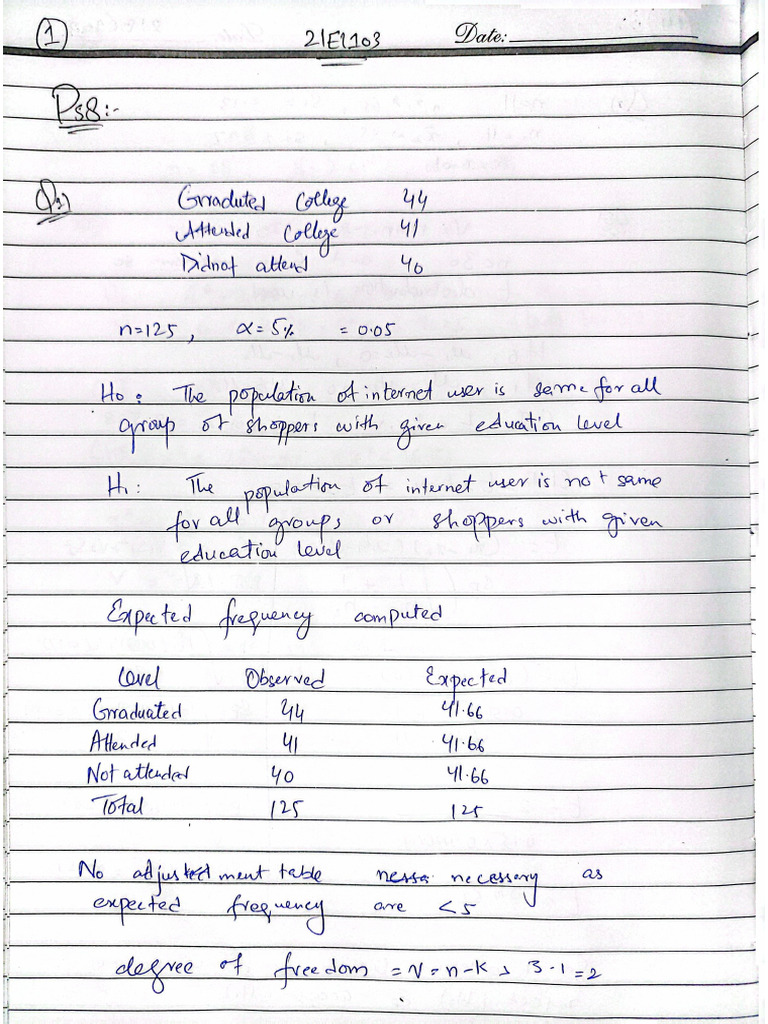 1 21EL103 Date:
Ps8:-
Q3) Grraduted College 44
Attended College 41
Didnot attend 40
n=125, α=5% = 0.05
Ho: The population of internet user is same for all
group of shoppers with given education level
H1: The population of internet user is not same
for all groups or shoppers with given
education level
Expected frequency computed
Level Observed Expected
Grraduated 44 41.66
Attended 41 41.66
Not attended 40 41.66
Total 125 125
No adjustment table necessary as
expected frequency are <5
degree of freedom = V = n-k, 3-1=2